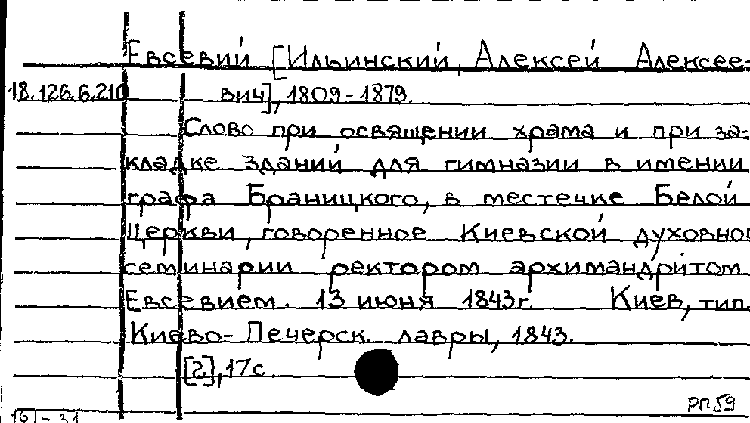 Евсевий [Ильинский, Алексей Алексее-
18.126.6.210 вич], 1809-1879.
Слово при освящении храма и при за-
кладке зданий для гимназии в имении
графа Браницкого, в местечке Белой
Церкви, говоренное Киевской духовной
семинарии ректором архимандритом
Евсевием. 13 июня 1843г. Киев, тип.
Киево-Печерск. лавры, 1843.
[2], 17с.